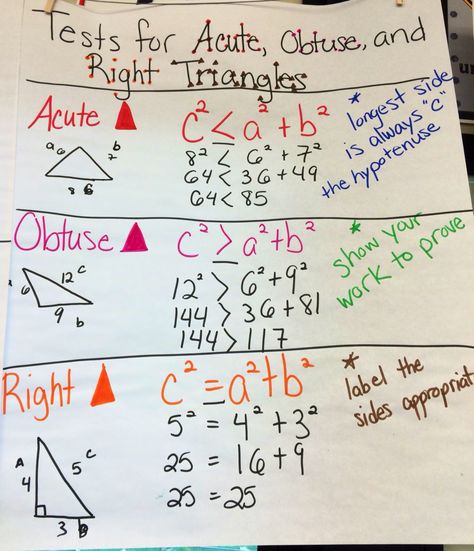 Tests for Acute, Obtuse, and
Right Triangles
Acute
c² < a² + b²
a 6
b
7
8
8² < 6² + 7²
64 < 36 + 49
64 < 85
* longest side
is always "c"
the hypotenuse
Obtuse
c² > a² + b²
6
12 c
9
b
12² > 6² + 9²
144 > 36 + 81
144 > 117
* show your
work to prove
Right
c² = a² + b²
A
4
5 c
3 b
5² = 4² + 3²
25 = 16 + 9
25 = 25
* label the
sides appropriat